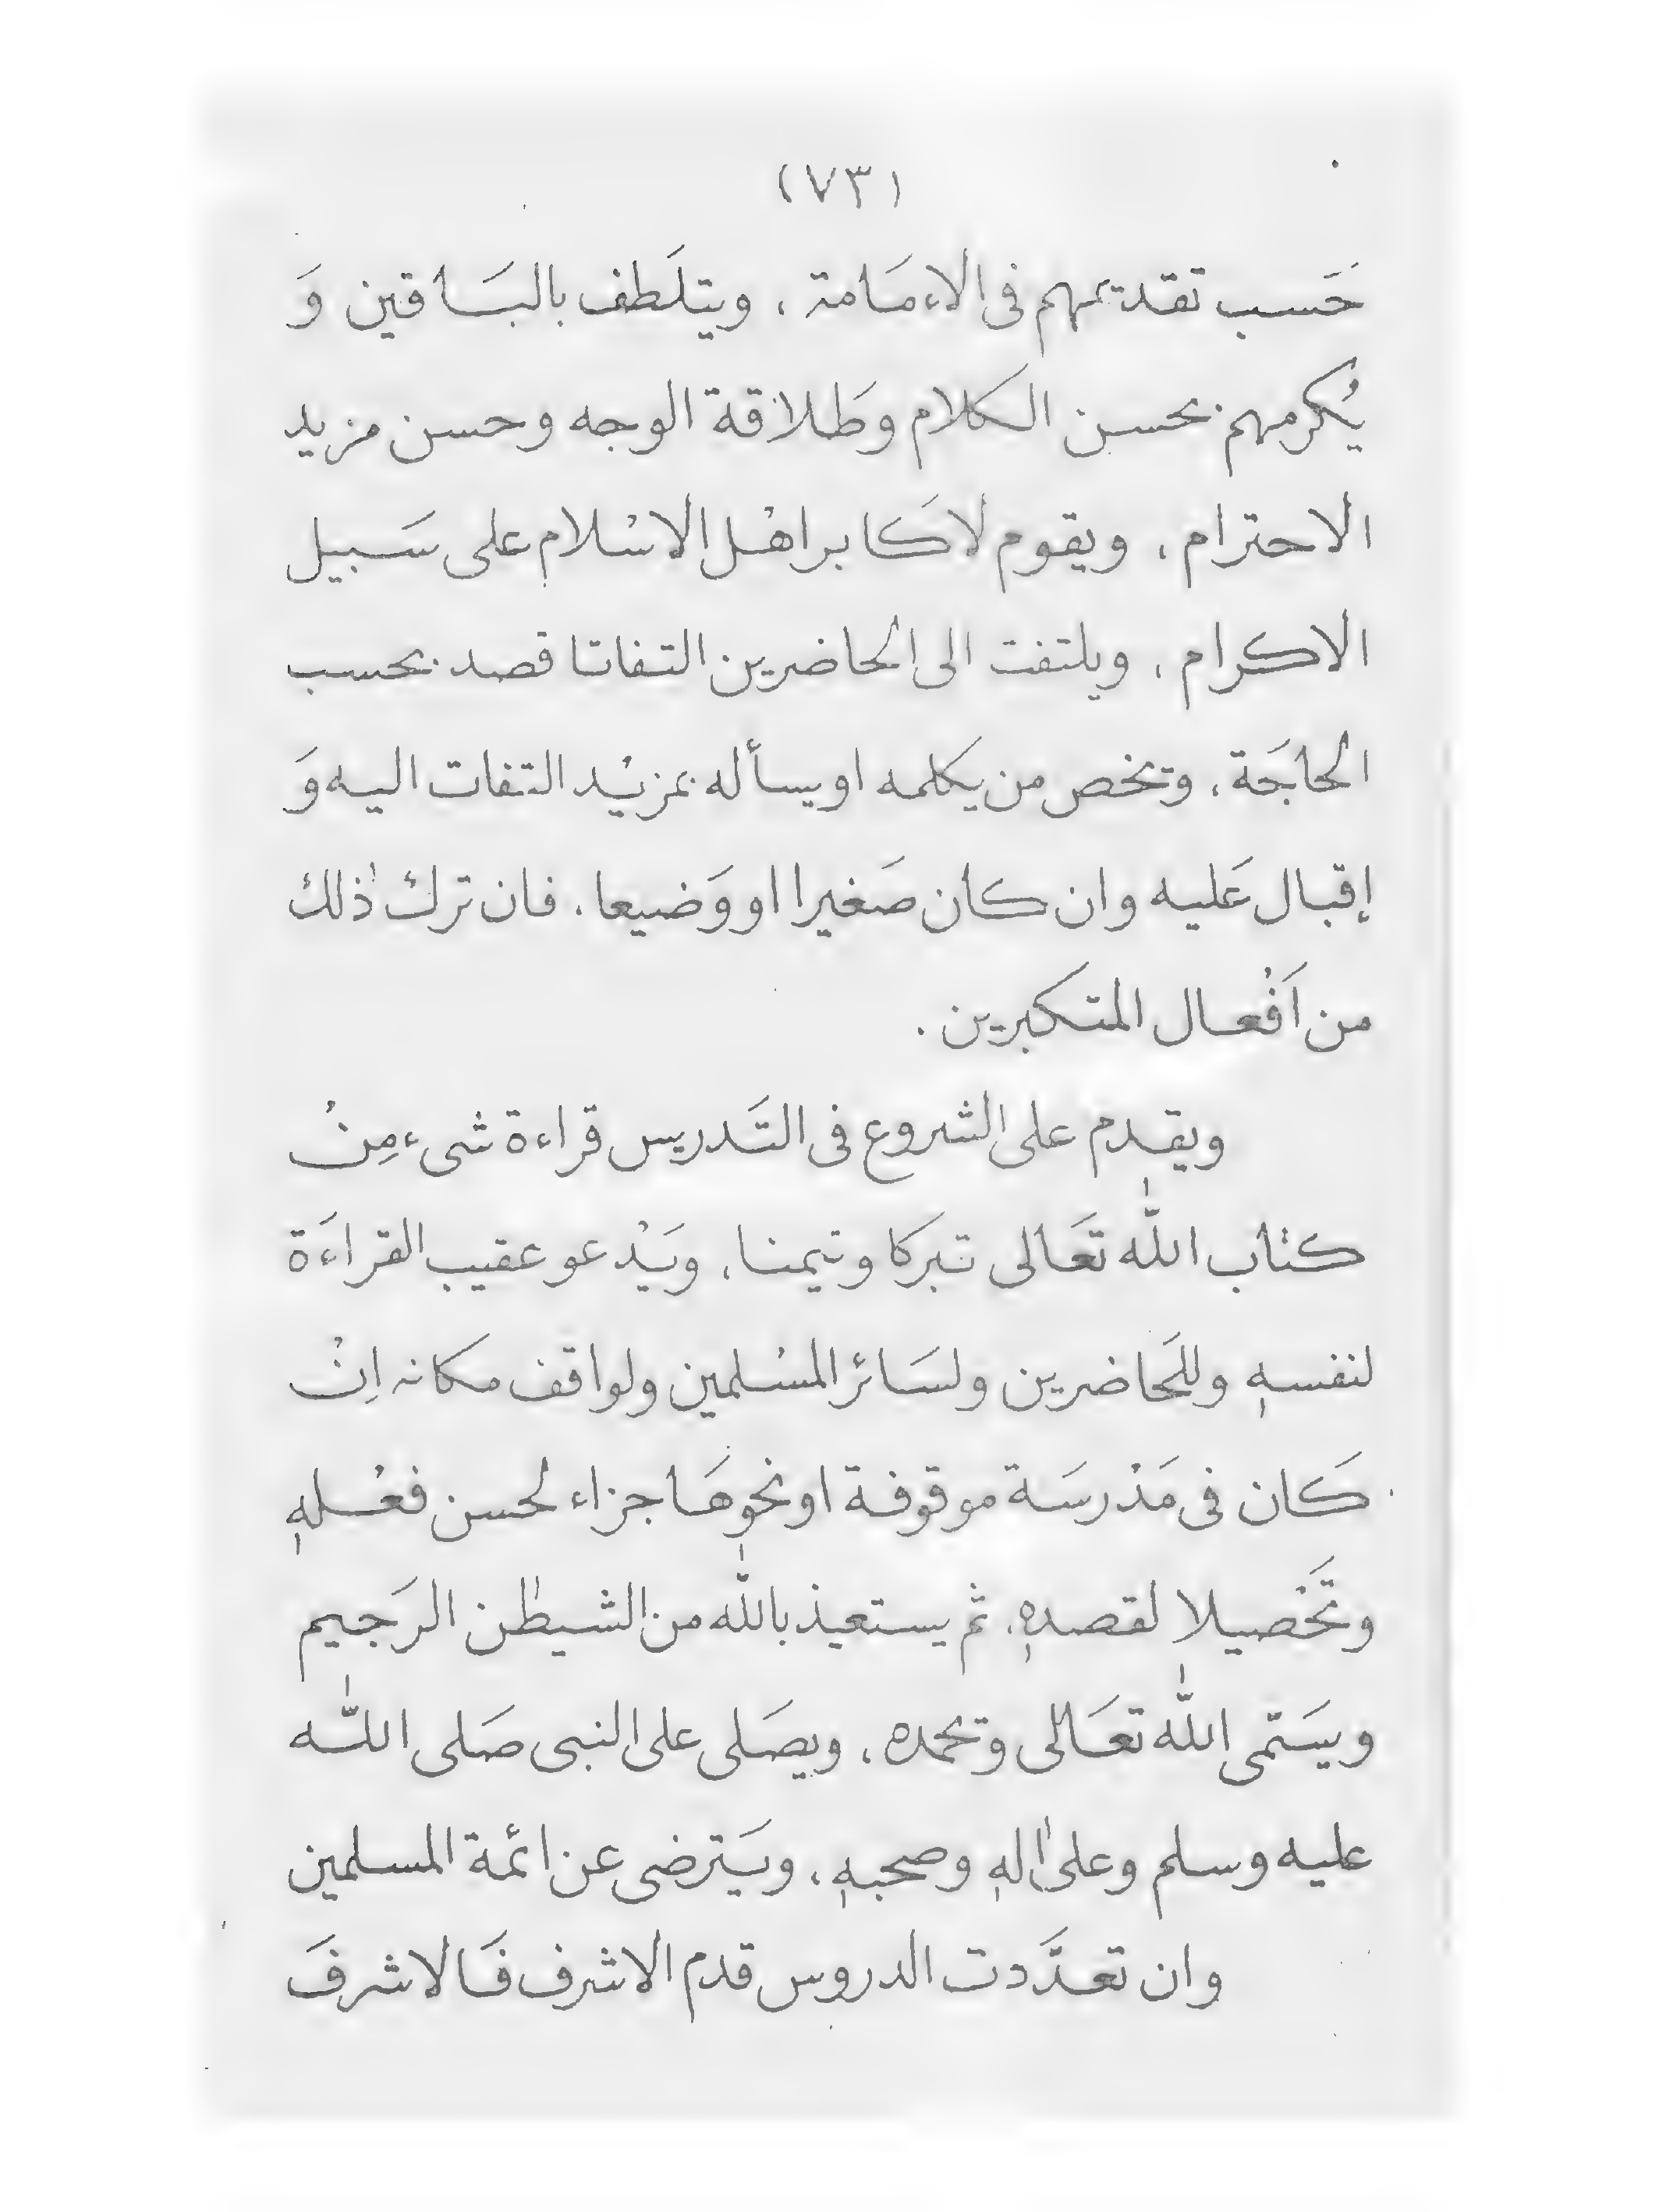 (٧٣)
حَسب تقديمهم فى الاءمَامة ، ويتلَطف بالبَاقين وَ
يُكرمهم بحسن الكلام وطَلاقة الوجه وحسن مزيد
الاحترام ، ويقوم لاكَابر اهْل الاسْلام على سَبيل
الاكرام ، ويلتفت الى الحاضرين التفاتا قصد بحسب
الحاجَة ، ويخص من يكلمه او يسأله بمزيْد التفات اليه وَ
إقبال عَليه وان كان صَغيرا او وَضيعا ، فان ترك ذٰلك
من اَفْعال المتكبرين .
ويقدم على الشروع فى التَدريس قراءة شىء مِنْ
كتاب اللّٰه تَعَالى تبركا وتيمنا ، ويَدْعو عقيب القراءَة
لنفسهٖ وللحَاضرين ولسَائر المسْلمين ولواقف مكانه اِنْ
كَان فى مَدْرسَة موقوفة او نحوهَا جزاء لحسن فعْلهٖ
وتَحْصيلا لقصدهٖ ، ثم يستعيذ باللّٰه من الشيطٰن الرَجيم
ويسَمى اللّٰه تعَالى ويحمده ، ويصَلى على النبى صَلى اللّٰه
عليه وسلم وعلى اٰلهٖ وصحبهٖ ، ويَترضى عن ائمة المسلمين
وان تعدَّدت الدروس قدم الاشرف فَالاشرفَ